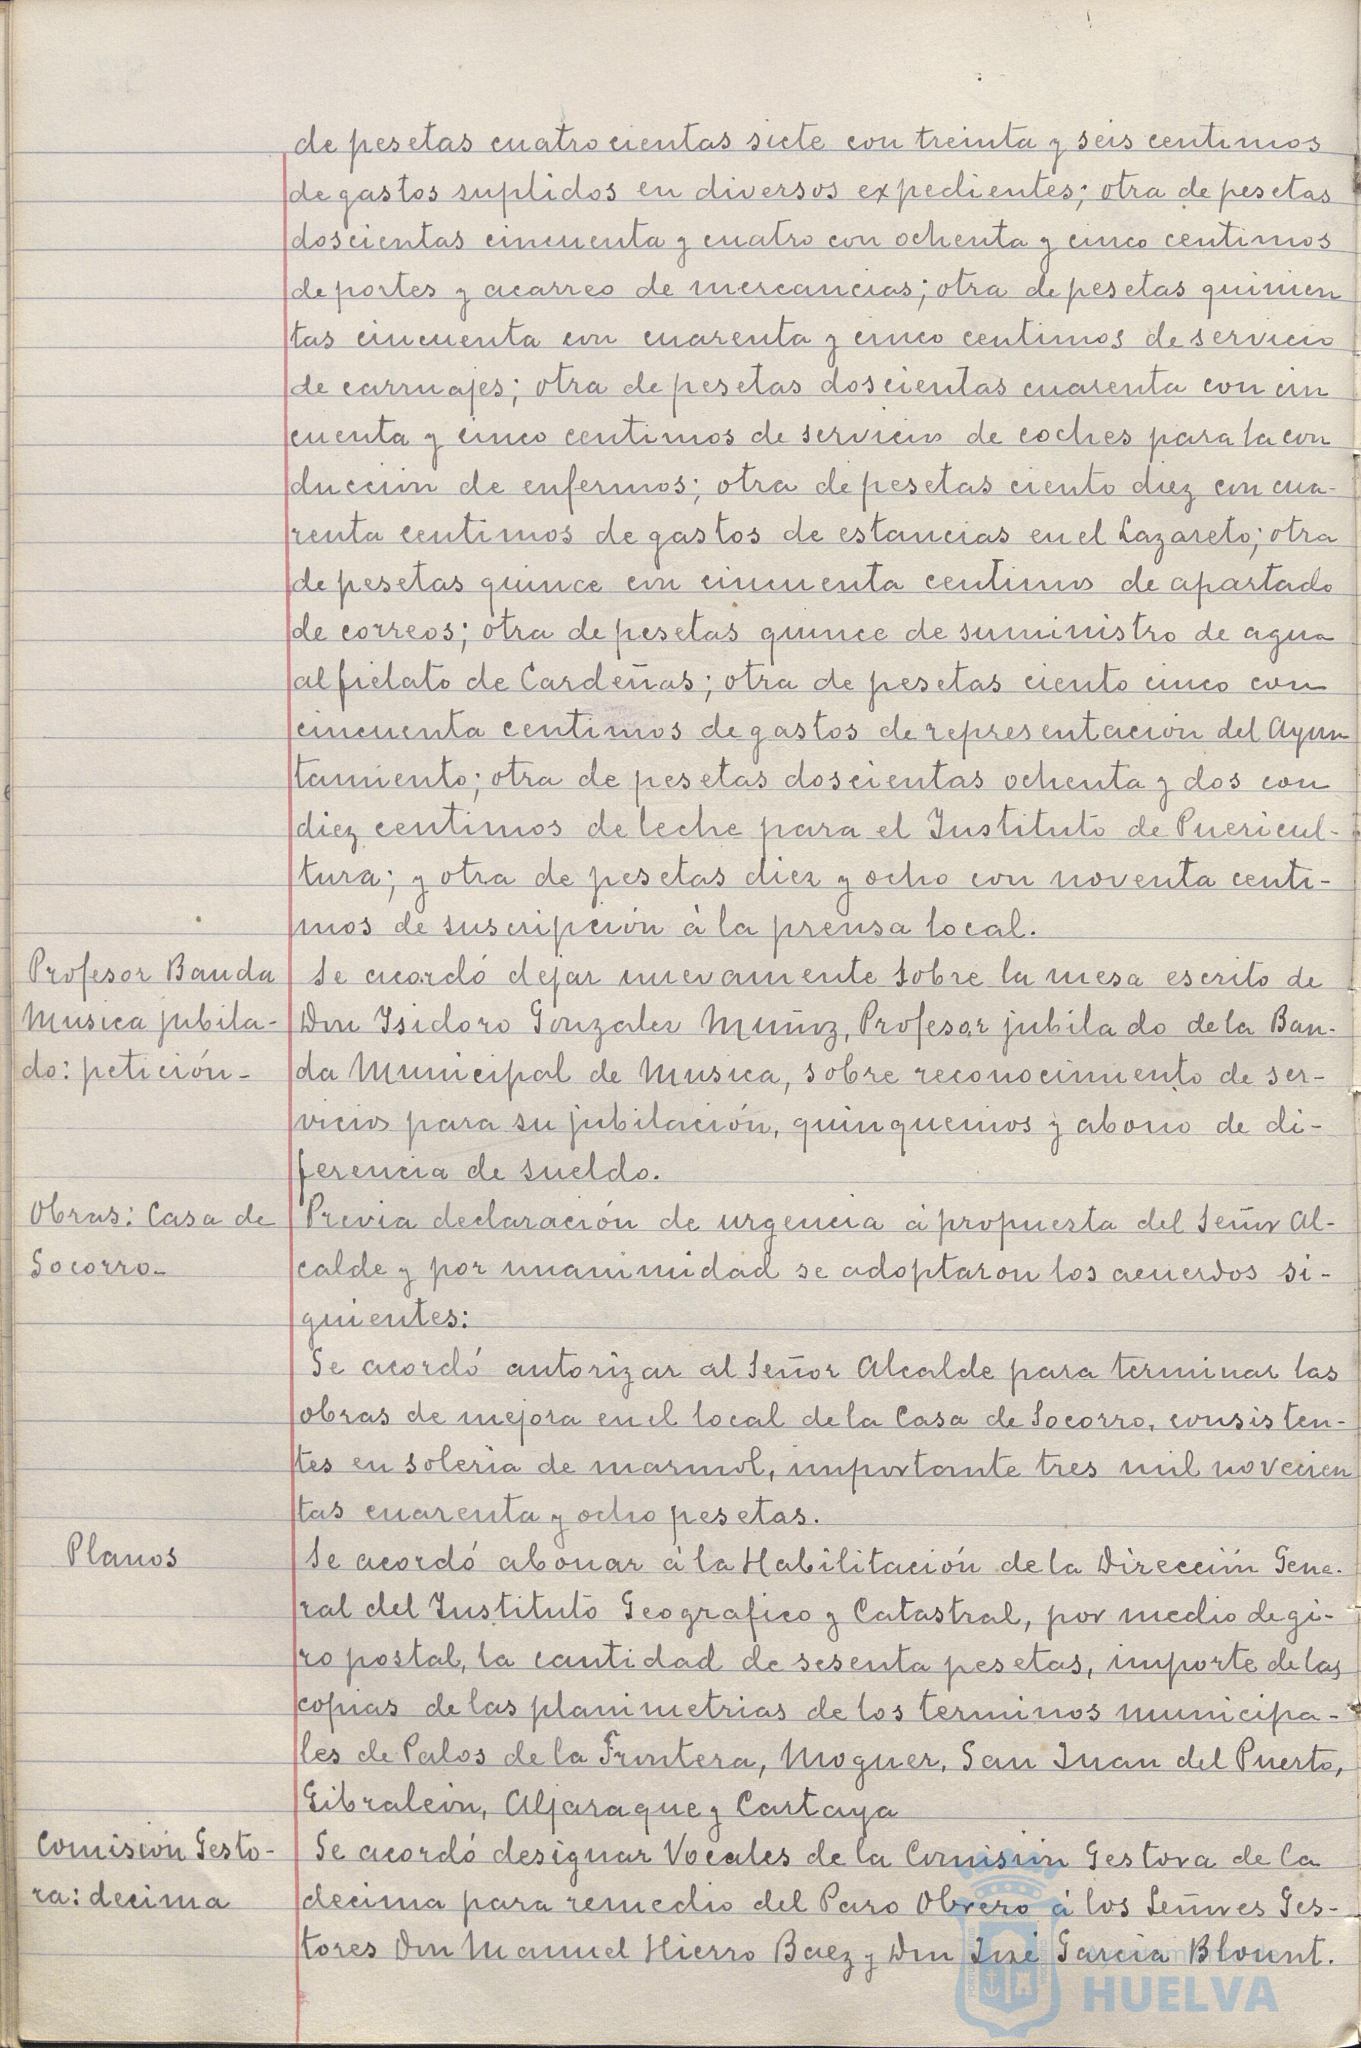 de pesetas cuatrocientas siete con treinta y seis centimos
de gastos suplidos en diversos expedientes; otra de pesetas
doscientas cincuenta y cuatro con ochenta y cinco centimos
de portes y acarreo de mercancias; otra de pesetas quinien
tas cincuenta con cuarenta y cinco centimos de servicio
de carruajes; otra de pesetas doscientas cuarenta con cin
cuenta y cinco centimos de servicio de coches para la con
ducción de enfermos; otra de pesetas ciento diez con cua-
renta centimos de gastos de estancias en el Lazareto; otra
de pesetas quince con cincuenta centimos de apartado
de correos; otra de pesetas quince de suministro de agua
al fielato de Cardeñas; otra de pesetas ciento cinco con
cincuenta centimos de gastos de representación del Ayun
tamiento; otra de pesetas doscientas ochenta y dos con
diez centimos de leche para el Instituto de Puericul-
tura; y otra de pesetas diez y ocho con noventa centi-
mos de suscripción à la prensa local.
Profesor Banda
Musica jubila-
do: petición-
Se acordó dejar nuevamente sobre la mesa escrito de
Don Isidoro Gonzalez Muñoz, Profesor jubilado de la Ban-
da Municipal de Musica, sobre reconocimiento de ser-
vicios para su jubilación, quinquenios y abono de di-
ferencia de sueldo.
Obras: Casa de
Socorro-
Previa declaración de urgencia à propuesta del Señor Al-
calde y por unanimidad se adoptaron los acuerdos si-
guientes:
Se acordó autorizar al Señor Alcalde para terminar las
obras de mejora en el local de la Casa de Socorro, consisten-
tes en soleria de marmol, importante tres mil novecien
tas cuarenta y ocho pesetas.
Planos
Se acordó abonar à la Habilitación de la Dirección Gene-
ral del Instituto Geografico y Catastral, por medio de gi-
ro postal, la cantidad de sesenta pesetas, importe de las
copias de las planimetrias de los terminos municipa-
les de Palos de la Frontera, Moguer, San Juan del Puerto,
Gibraleón, Aljaraque y Cartaya
Comisión Gesto-
ra: decima
Se acordó designar Vocales de la Comisión Gestora de la
decima para remedio del Paro Obrero à los Señores Ges-
tores Don Manuel Hierro Baez y Don José Garcia Blount.
HUELVA